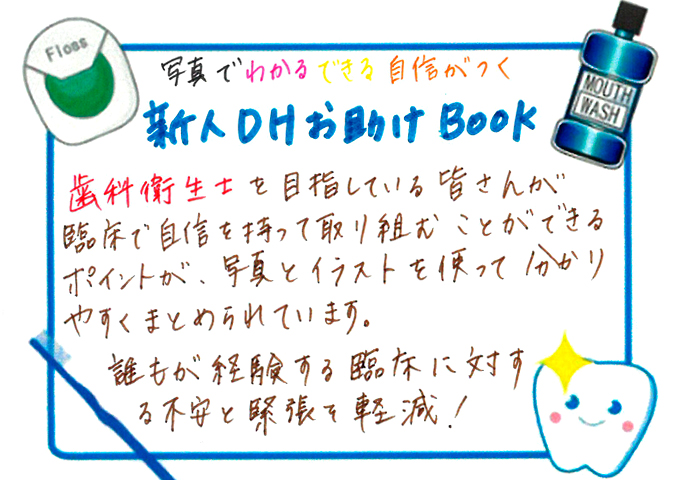 Floss
写真でわかるできる自信がつく
MOUTH
WASH
新人DHお助けBOOK
歯科衛生士を目指している皆さんが
臨床で自信を持って取り組むことができる
ポイントが、写真とイラストを使って分かり
やすくまとめられています。
誰もが経験する臨床に対す
る不安と緊張を軽減!